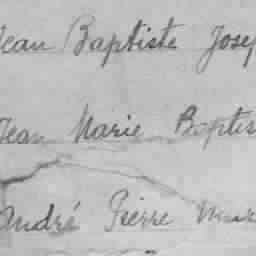 Jean Baptiste Josep
Jean Marie Baptis
André Pierre